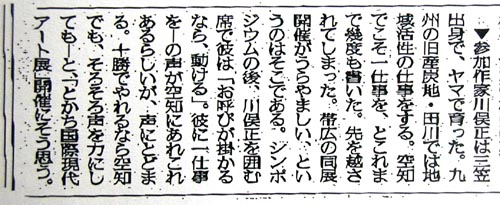 ▼参加作家川俣正は三笠
出身で、ヤマで育った。九
州の旧産炭地・田川では地
域活性の仕事をする。空知
でこそ一仕事を、どこれま
で幾度も書いた。先を越さ
れてしまった。帯広の同展
開催がうらやましい、とい
うのはそこである。シンポ
ジウムの後、川俣正を囲む
席で彼は「お呼びが掛かる
なら、動ける」。彼に一仕事
を―の声が空知にあれこれ
あるらしいが、声にとどま
る。十勝でやれるなら空知
でも、そろそろ声を力にし
ても―と、「とかち国際現代
アート展」開催にそう思う。